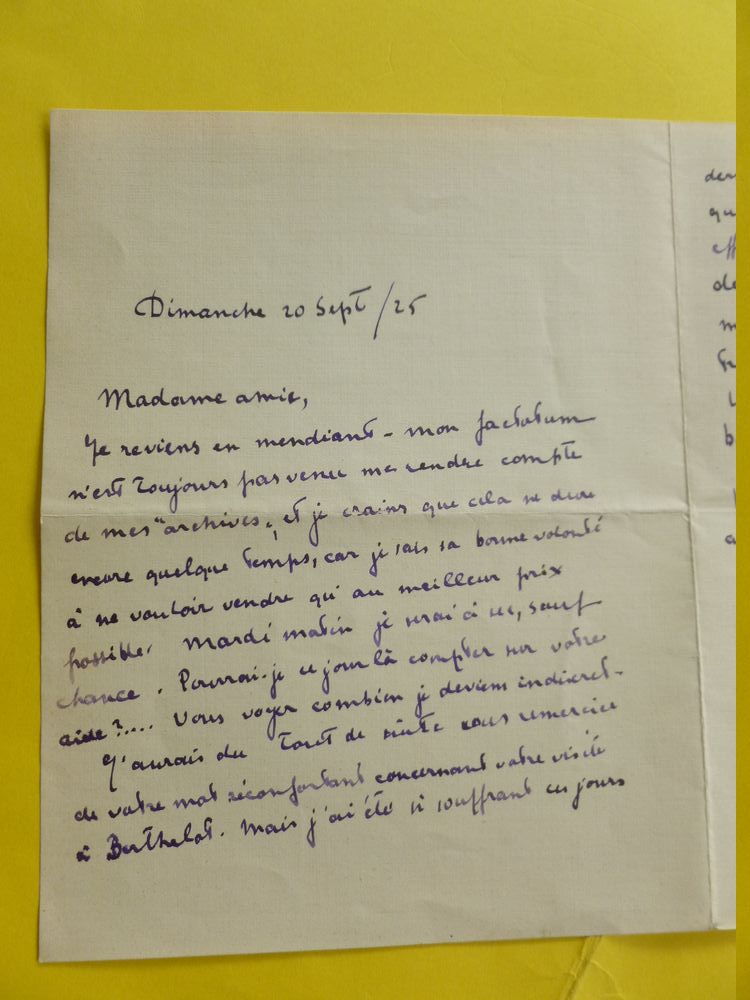 Dimanche 20 Sept /25
Madame amie,
Je reviens en mendiant - mon factotum
n'est toujours pas venu me rendre compte
de mes "archives", et je crains que cela ne dure
encore quelque temps, car je sais sa bonne volonté
à ne vouloir vendre qu'au meilleur prix
possible. Mardi matin je serai à sec, sauf
chance. Pourrai-je ce jour là compter sur votre
aide ?.... Vous voyez combien je deviens indiscret.
J'aurais du tout de suite vous remercier
de votre mot réconfortant concernant votre visite
à Berthelot. Mais j'ai été si souffrant ces jours
der
qu
eff
de
m
b